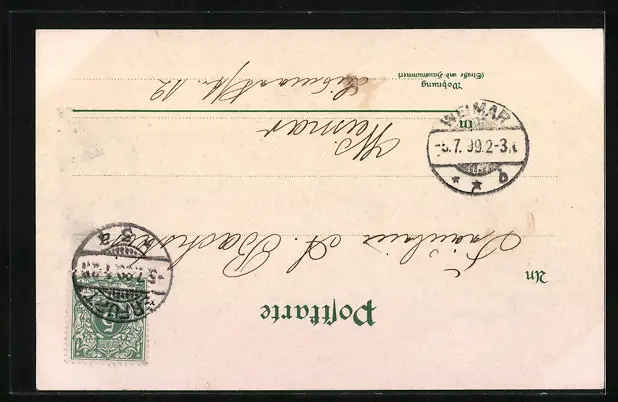 Postkarte
An
Fräulein A. Bachstein
in
Weimar
Wohnung
(Straße und Hausnummer)
str. 12
WEIMAR
-5.7.99.2-3.N
* * b
ERFURT
5